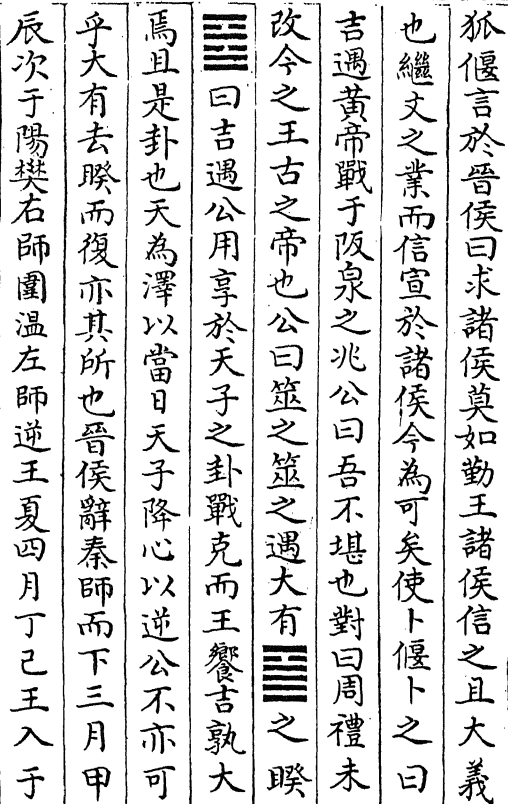 狐偃言於晉侯曰求諸侯莫如勤王諸侯信之且大義
也繼文之業而信宣於諸侯今為可矣使卜偃卜之曰
吉遇黃帝戰于阪泉之兆公曰吾不堪也對曰周禮未
改今之王古之帝也公曰筮之筮之遇大有䷍之睽
䷥曰吉遇公用享於天子之卦戰克而王饗吉孰大
焉且是卦也天為澤以當日天子降心以逆公不亦可
乎大有去睽而復亦其所也晉侯辭秦師而下三月甲
辰次于陽樊右師圍温左師逆王夏四月丁己王入于